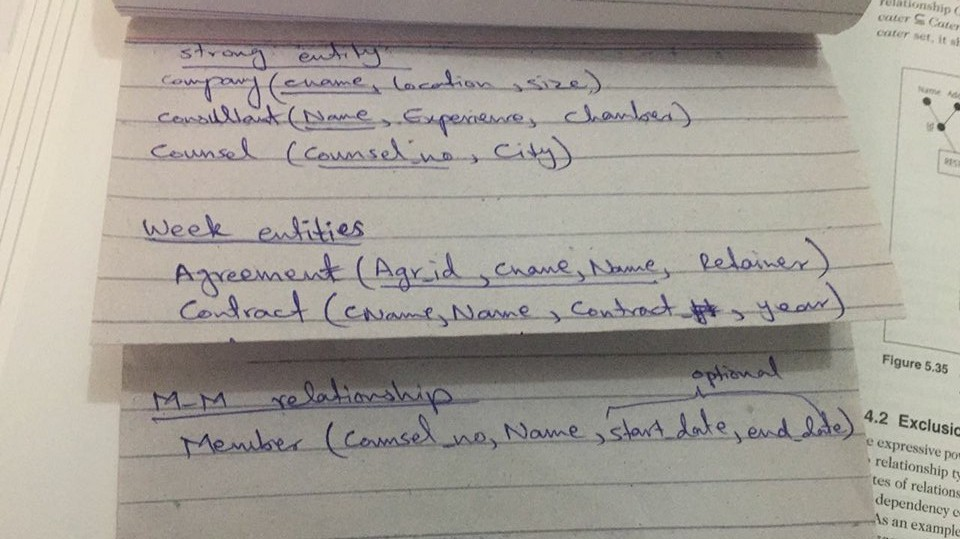 strong entity
Company (cname, location, size)
Consultant (Name, Experience, Chamber)
Counsel (Counsel_no, City)
Week entities
Agreement (Agr_id, cname, Name, Retainer)
Contract (CName, Name, Contract, year)
optional
M-M relationship
Member (Counsel_no, Name, start_date, end_date)
relationship
cater ⊆ Cater
cater set, it sh
Name
RES
Figure 5.35
4.2 Exclusio
e expressive pow
relationship ty
tes of relations
dependency c
As an example